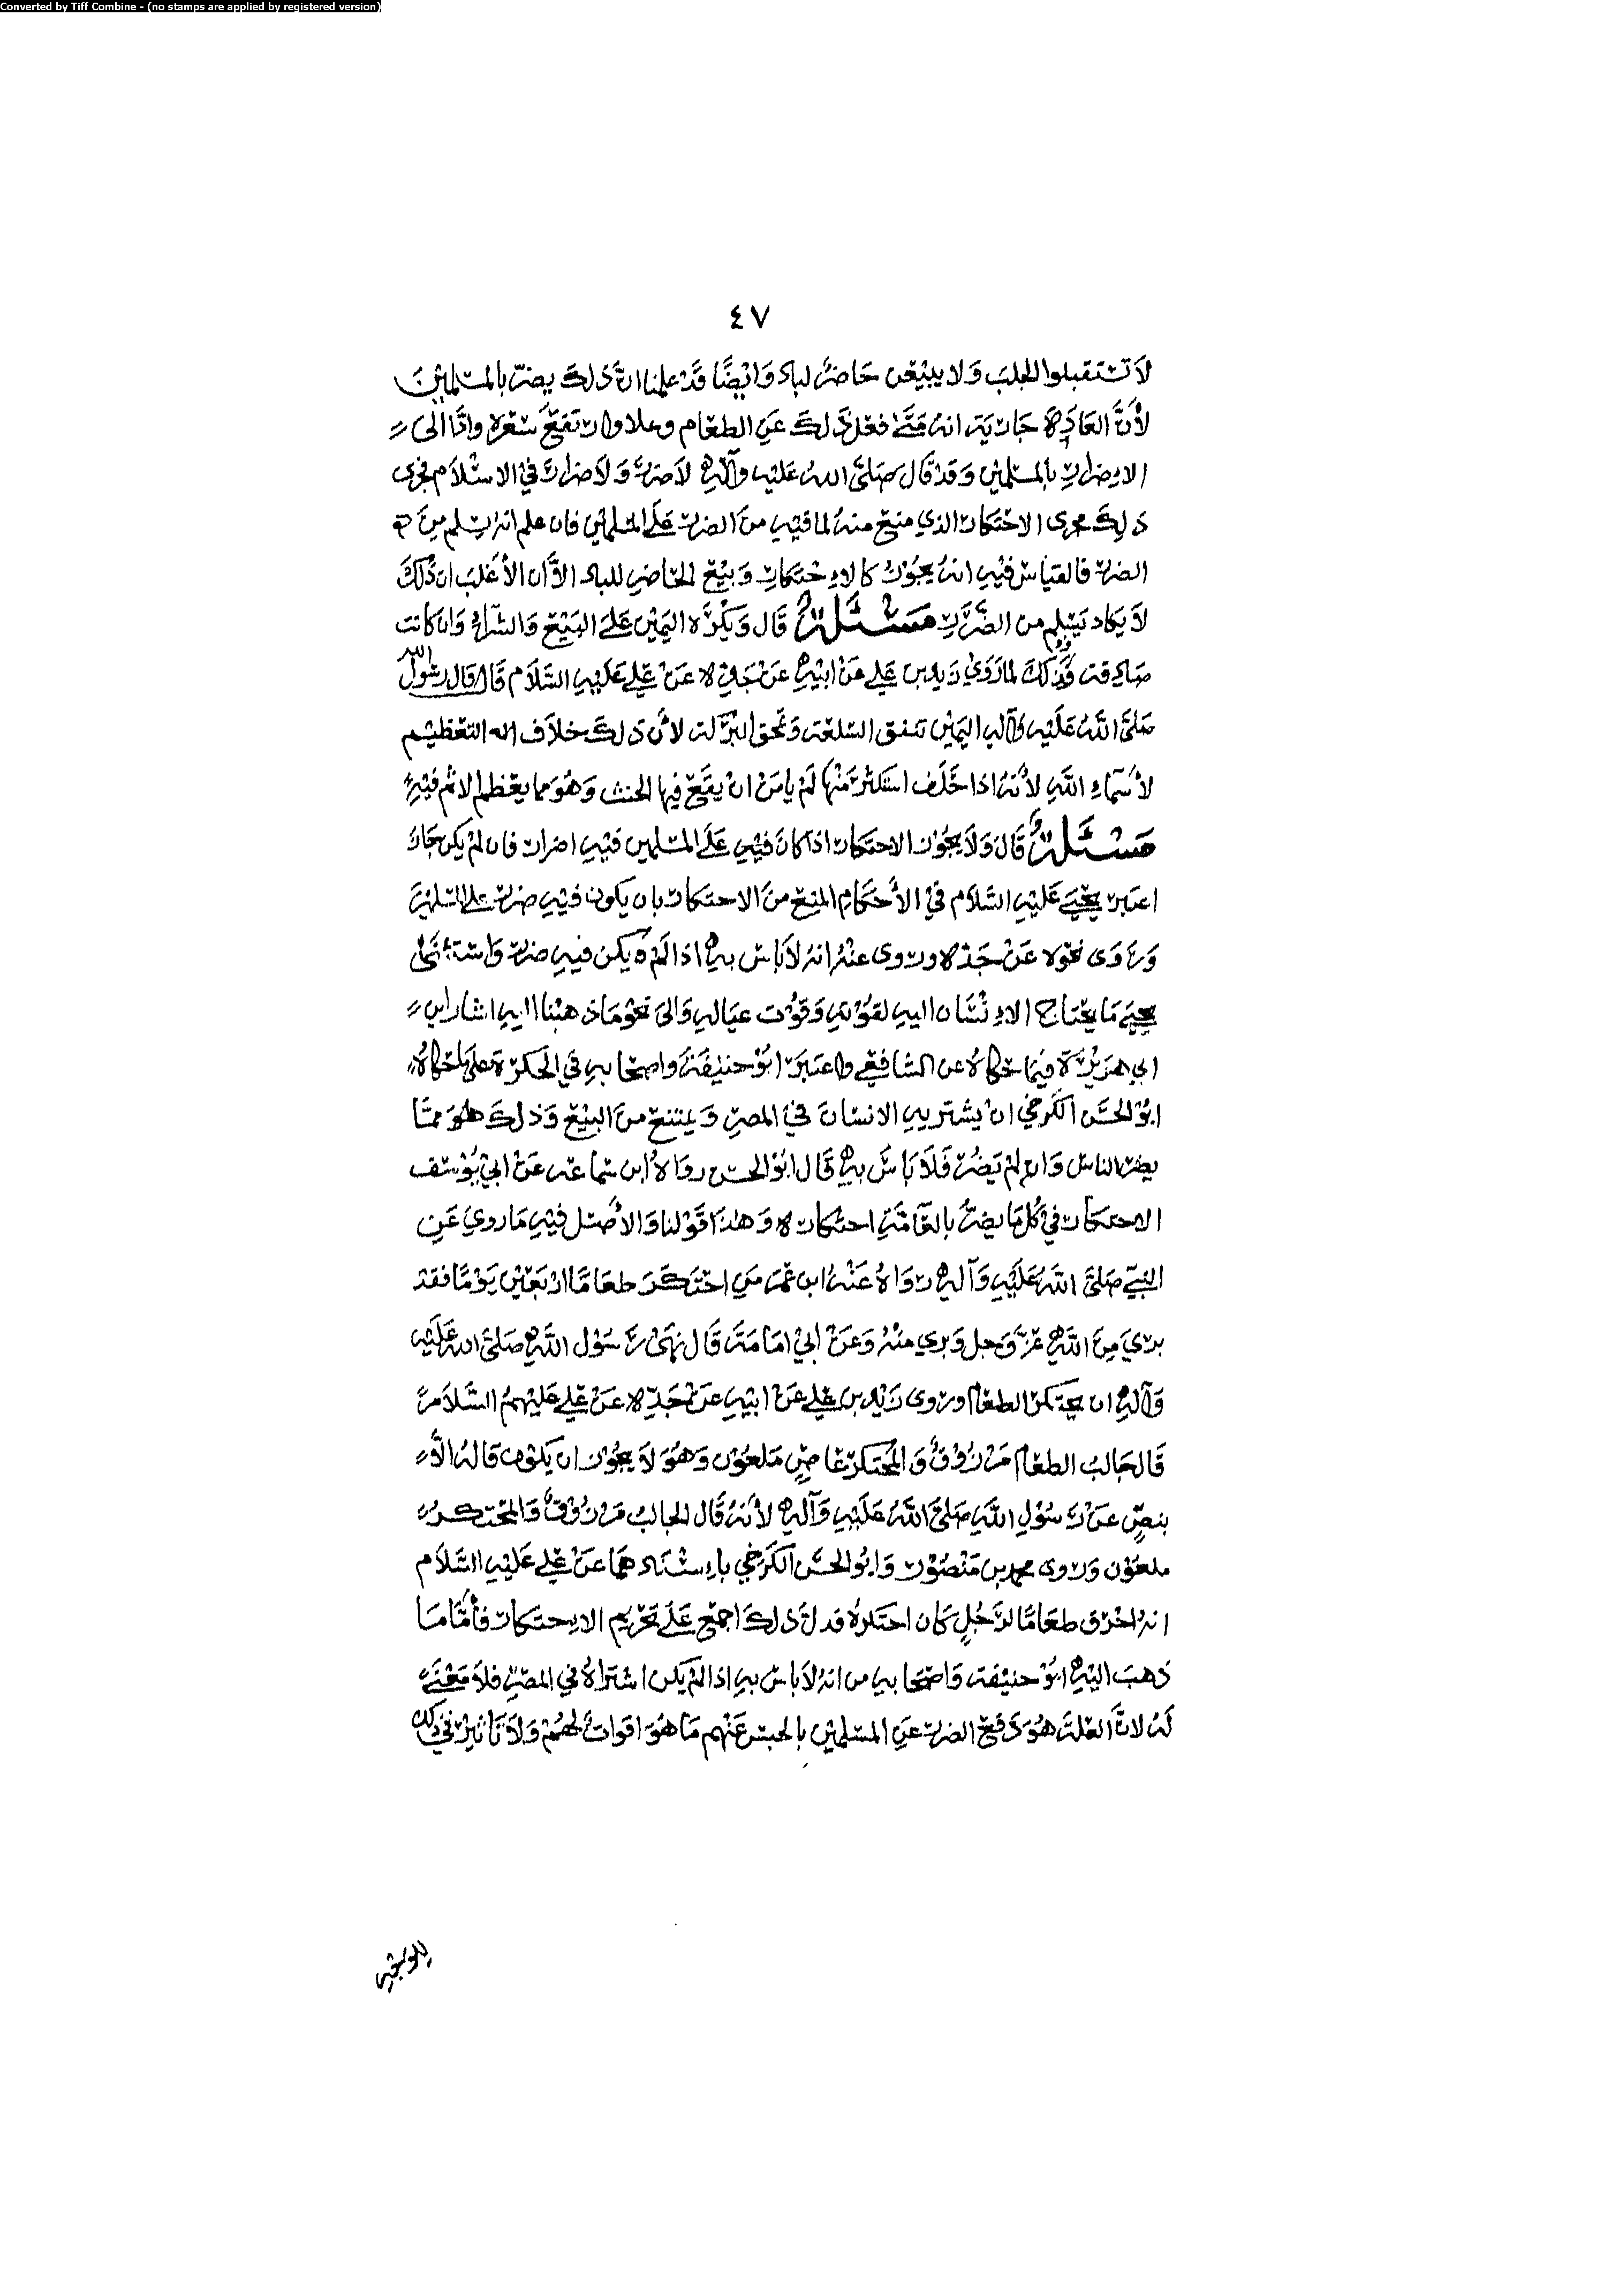 Converted by Tiff Combine - (no stamps are applied by registered version)
٤٧
لا تستقبلوا الجلب ولا يبيعن حاضر لباد وايضا قد علمنا ان ذلك يضر بالمسلمين
لأن العادة جارية انه متى فعل ذلك عن الطعام وغلا وارتفع سعره وادا الى
الاضرار بالمسلمين وقد قال صلى الله عليه وآله لا ضرر ولا ضرار في الاسلام فجرى
ذلك مجرى الاحتكار الذي منع منه لما فيه من الضرر على المسلمين فان علم انه يسلم من
الضرر فالقياس فيه انه يجوز كالاحتكار وبيع الحاضر للباد الا ان الأغلب ان ذلك
لا يكاد يسلم من الضرر مسئلة قال ويكره اليمين على البيع والشراء وان كانت
صادقة وذلك لما روي زيد بن علي عن ابيه عن جده عن علي عليه السلام قال قال رسول الله
صلى الله عليه وآله اليمين تنفق السلعة وتمحق البركة لأن ذلك خلاف التعظيم
لأسماء الله لأنه اذا حلف استكثر منها لم يامن ان يقع فيها الحنث وهو مما يعظم الاثم فيه
مسئلة قال ولا يجوز الاحتكار اذا كان فيه على المسلمين فيه اضرار فان لم يكن جاز
اعتبر يحيى عليه السلام في الأحكام المنع من الاحتكار بان يكون فيه ضرر على المسلمين
وروى نحوه عن جده وروى عنه انه لا باس به اذا لم يكن فيه ضرر واستثنى
يحيى ما يحتاج الانسان اليه لقوته وقوت عياله والى نحو ما ذهبنا اليه اشار ابن
ابي هريرة فيما حكاه عن الشافعي واعتبر ابو حنيفة واصحابه في الحكرة على ما حكاه
ابو الحسن الكرخي ان يشتريه الانسان في المصر ويمتنع من البيع وذلك هو مما
يضر الناس وان لم يضر فلا باس به قال ابو الحسن رواه ابن سماعه عن ابي يوسف
الاحتكار في كل ما يضر بالعامة احتكاره وهذا قولنا والأصل فيه ما روي عن
النبي صلى الله عليه وآله رواه عنه ابن عمر من احتكر طعاما اربعين يوما فقد
بري من الله عز وجل وبري منه وعن ابي امامة قال نهى رسول الله صلى الله عليه
وآله ان يحتكر الطعام وروى زيد بن علي عن ابيه عن جده عن علي عليهم السلام
قال جالب الطعام مرزوق والمحتكر عاص ملعون وهو لا يجوز ان يكون قاله الا
بنص عن رسول الله صلى الله عليه وآله لأنه قال الجالب مرزوق والمحتكر
ملعون وروى محمد بن منصور وابو الحسن الكرخي باسنادهما عن علي عليه السلام
انه احرق طعاما لرجل كان احتكره فدل ذلك اجمع على تحريم الاحتكار فأما ما
ذهب اليه ابو حنيفة واصحابه من انه لا باس به اذا لم يكن اشتراه في المصر فلا معنى
له لان العلة هو دفع الضرر عن المسلمين بالحبس عنهم ما هو اقوات لهم ولا تاثير في ذلك